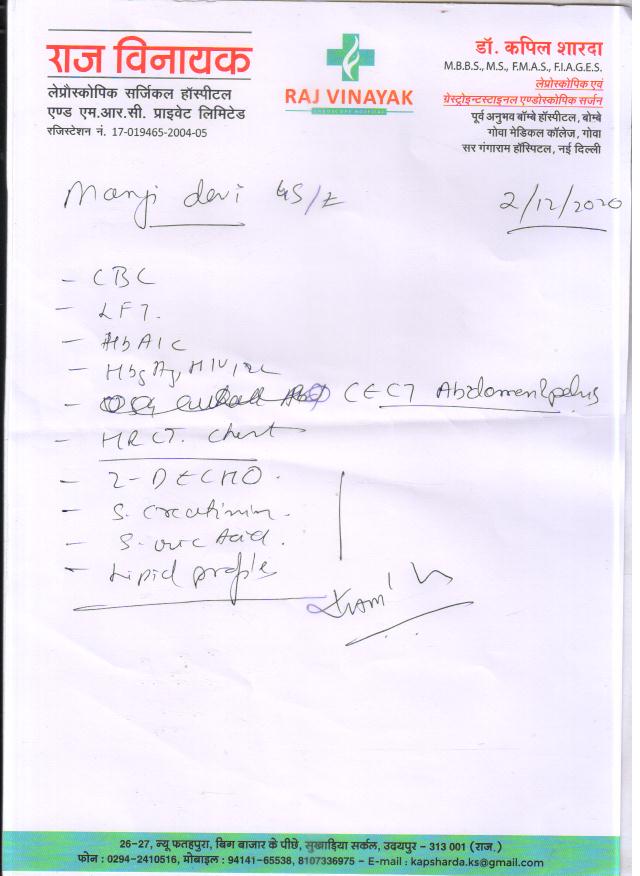 राज विनायक
लेप्रोस्कोपिक सर्जिकल हॉस्पीटल
एण्ड एम.आर.सी. प्राइवेट लिमिटेड
रजिस्टेशन नं. 17-019465-2004-05
RAJ VINAYAK
ENDOSCOPY HOSPITAL
डॉ. कपिल शारदा
M.B.B.S., M.S., F.M.A.S., F.I.A.G.E.S.
लेप्रोस्कोपिक एवं
गेस्ट्रोइन्टस्टाइनल एण्डोस्कोपिक सर्जन
पूर्व अनुभव बॉम्बे हॉस्पीटल, बोम्बे
गोवा मेडिकल कॉलेज, गोवा
सर गंगाराम हॉस्पिटल, नई दिल्ली
Manji devi
2/12/2020
- CBC
- LFT.
- HbA1C
- HbsAg, HIV,
- CECT Abdomen & pelvis
- HRCT. Chest
- 2-D ECHO.
- S. Creatinin.
- S. uric Acid.
- Lipid profile
26-27, न्यू फतहपुरा, बिग बाजार के पीछे, सुखाड़िया सर्कल, उदयपुर - 313 001 (राज.)
फोन : 0294-2410516, मोबाइल : 94141-65538, 8107336975 – E-mail : kapsharda.ks@gmail.com